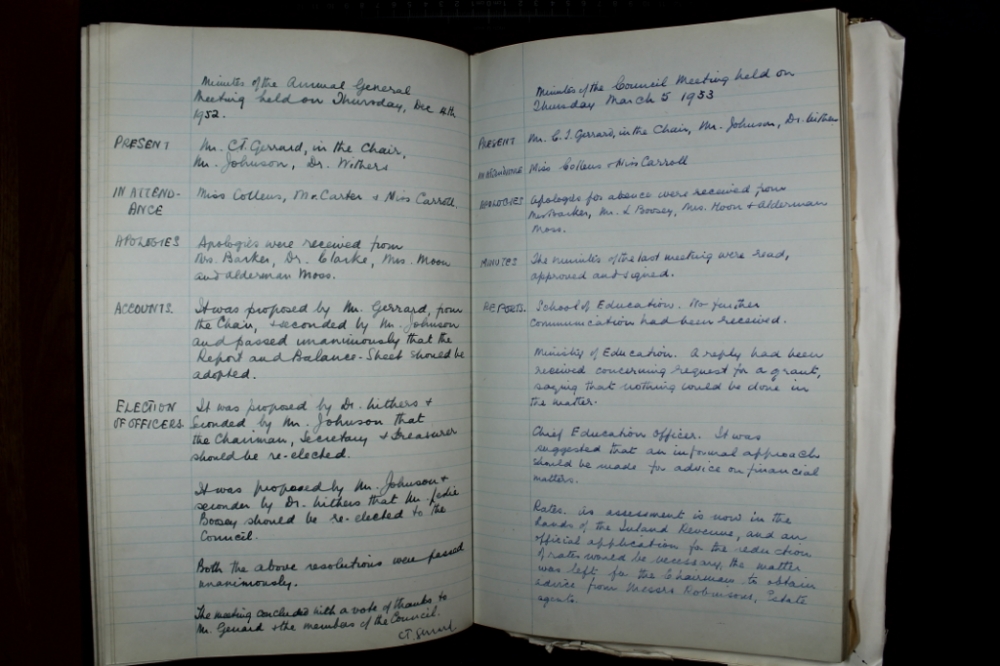 Minutes of the Annual General
Meeting held on Thursday, Dec 4th
1952.
PRESENT Mr. C.T. Gerrard, in the Chair,
Mr. Johnson, Dr. Withers
IN ATTEND- Miss Collens, Mr. Carter + Miss Carroll.
ANCE
APOLOGIES Apologies were received from
Mrs. Barker, Dr. Clarke, Mrs. Moon
and Alderman Moss.
ACCOUNTS. It was proposed by Mr. Gerrard, from
the Chair, + seconded by Mr. Johnson
and passed unanimously that the
Report and Balance-Sheet should be
adopted.
ELECTION It was proposed by Dr. Withers +
OF OFFICERS. seconded by Mr. Johnson that
the Chairman, Secretary + Treasurer
should be re-elected.
It was proposed by Mr. Johnson +
seconded by Dr. Withers that Mr. Leslie
Boosey should be re-elected to the
Council.
Both the above resolutions were passed
unanimously.
The meeting concluded with a vote of thanks to
Mr. Gerrard + the members of the Council.
C.T. Gerrard.
Minutes of the Council Meeting held on
Thursday March 5 1953
PRESENT Mr. C.T. Gerrard, in the Chair, Mr. Johnson, Dr. Withers
IN ATTENDANCE Miss Collens + Miss Carroll
APOLOGIES Apologies for absence were received from
Mrs Barker, Mr. L Boosey, Mrs. Moon + Alderman
Moss.
MINUTES The minutes of the last meeting were read,
approved and signed.
REPORTS. School of Education. No further
communication had been received.
Ministry of Education. A reply had been
received concerning request for a grant,
saying that nothing could be done in
the matter.
Chief Education Officer. It was
suggested that an informal approach
should be made for advice on financial
matters.
Rates. As assessment is now in the
hands of the Inland Revenue, and an
official application for the reduction
of rates would be necessary, the matter
was left for the Chairman to obtain
advice from Messrs Robinsons, Estate
agents.